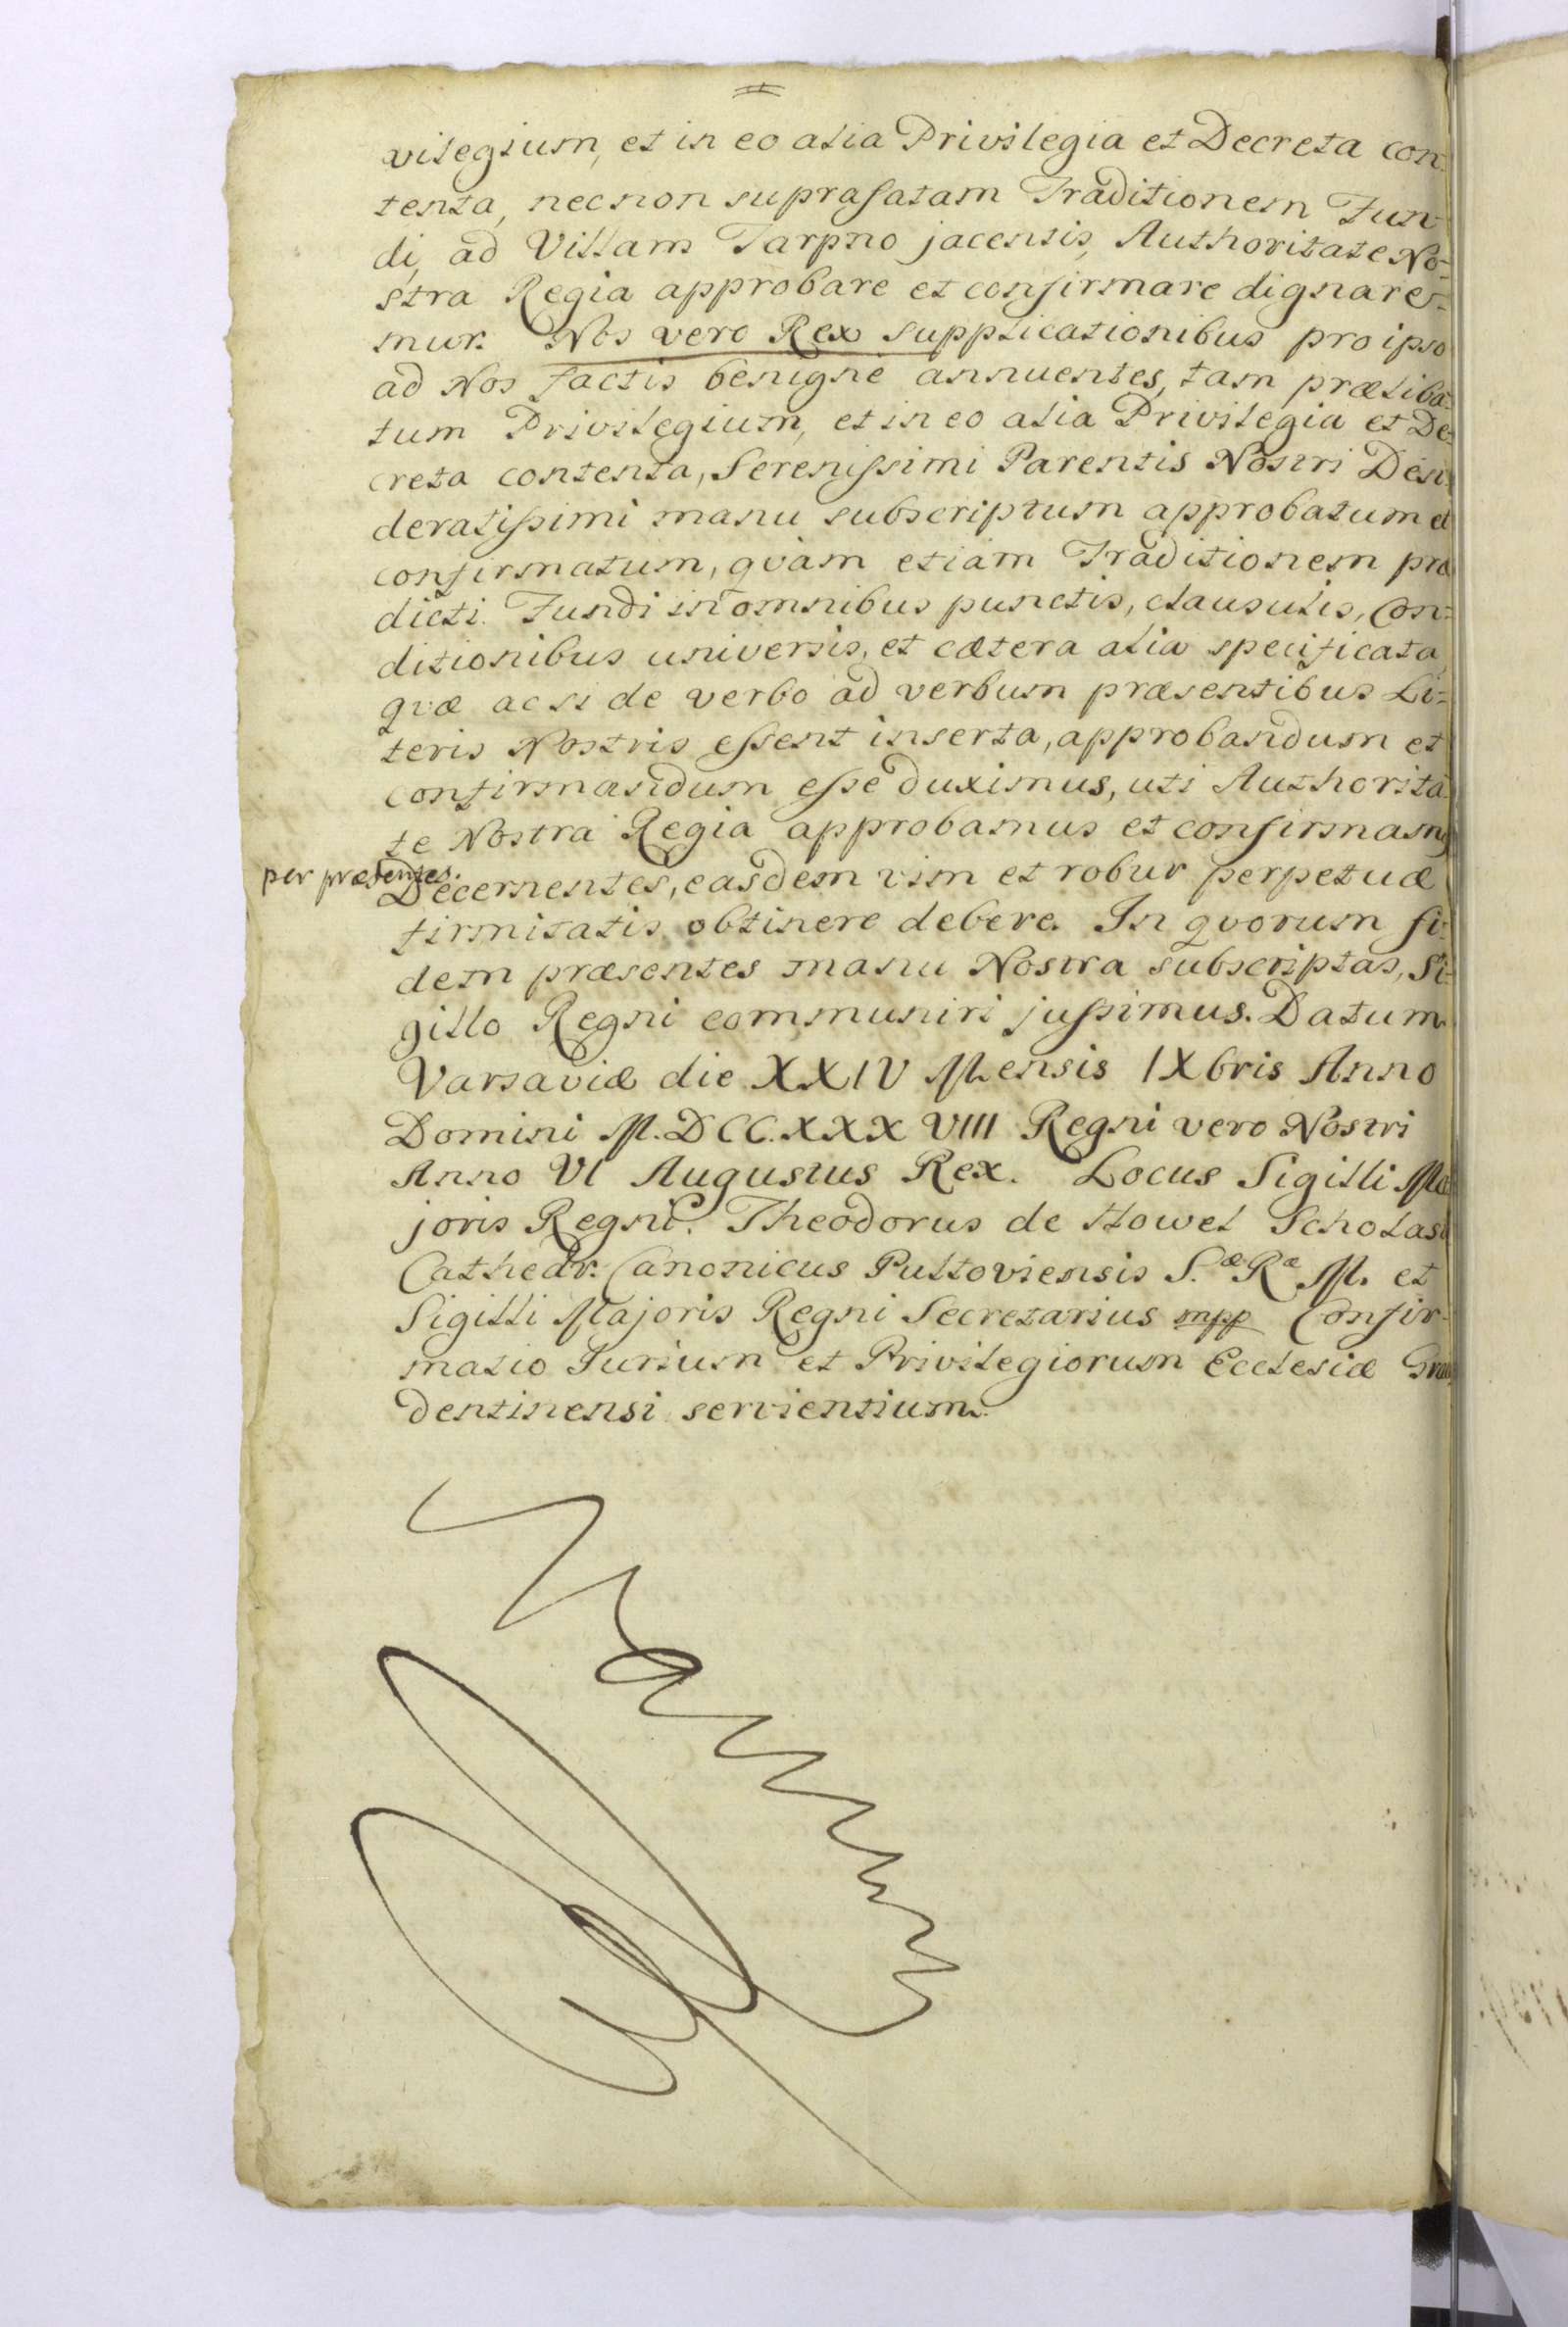 vilegium, et in eo alia Privilegia et Decreta con-
tenta, necnon suprafatam Traditionem Fun-
di, ad Villam Tarpno jacentis, Authoritate No-
stra Regia approbare et confirmare dignare-
mur. Nos vero Rex supplicationibus pro ipso
ad Nos factis benigne annuentes, tam præliba-
tum Privilegium, et in eo alia Privilegia et De-
creta contenta, Serenissimi Parentis Nostri Desi-
deratissimi manu subscriptum approbatum et
confirmatum, qvàm etiam Traditionem præ
dicti Fundi in omnibus punctis, clausulis, Con-
ditionibus universis, et cætera alia specificata
qvæ ac si de verbo ad verbum præsentibus Li-
teris Nostris essent inserta, approbandum et
confirmandum esse duximus, uti Authorita-
te Nostra Regia approbamus et confirmamus
per præsentes.
Decernentes, easdem vim et robur perpetuæ
firmitatis obtinere debere. In qvorum fi-
dem præsentes manu Nostra subscriptas, Si-
gillo Regni communiri jussimus. Datum
Varsaviæ die XXIV Mensis IXbris Anno
Domini M.DCC.XXXVIII Regni vero Nostri
Anno VI Augustus Rex. Locus Sigilli Ma
joris Regni. Theodorus de Howel Scholas
Cathedr. Canonicus Pultoviensis S.æ Ræ M. et
Sigilli Majoris Regni Secretarius mpp Confir-
matio Jurium et Privilegiorum Ecclesiæ Grau
dentinensi servientium.